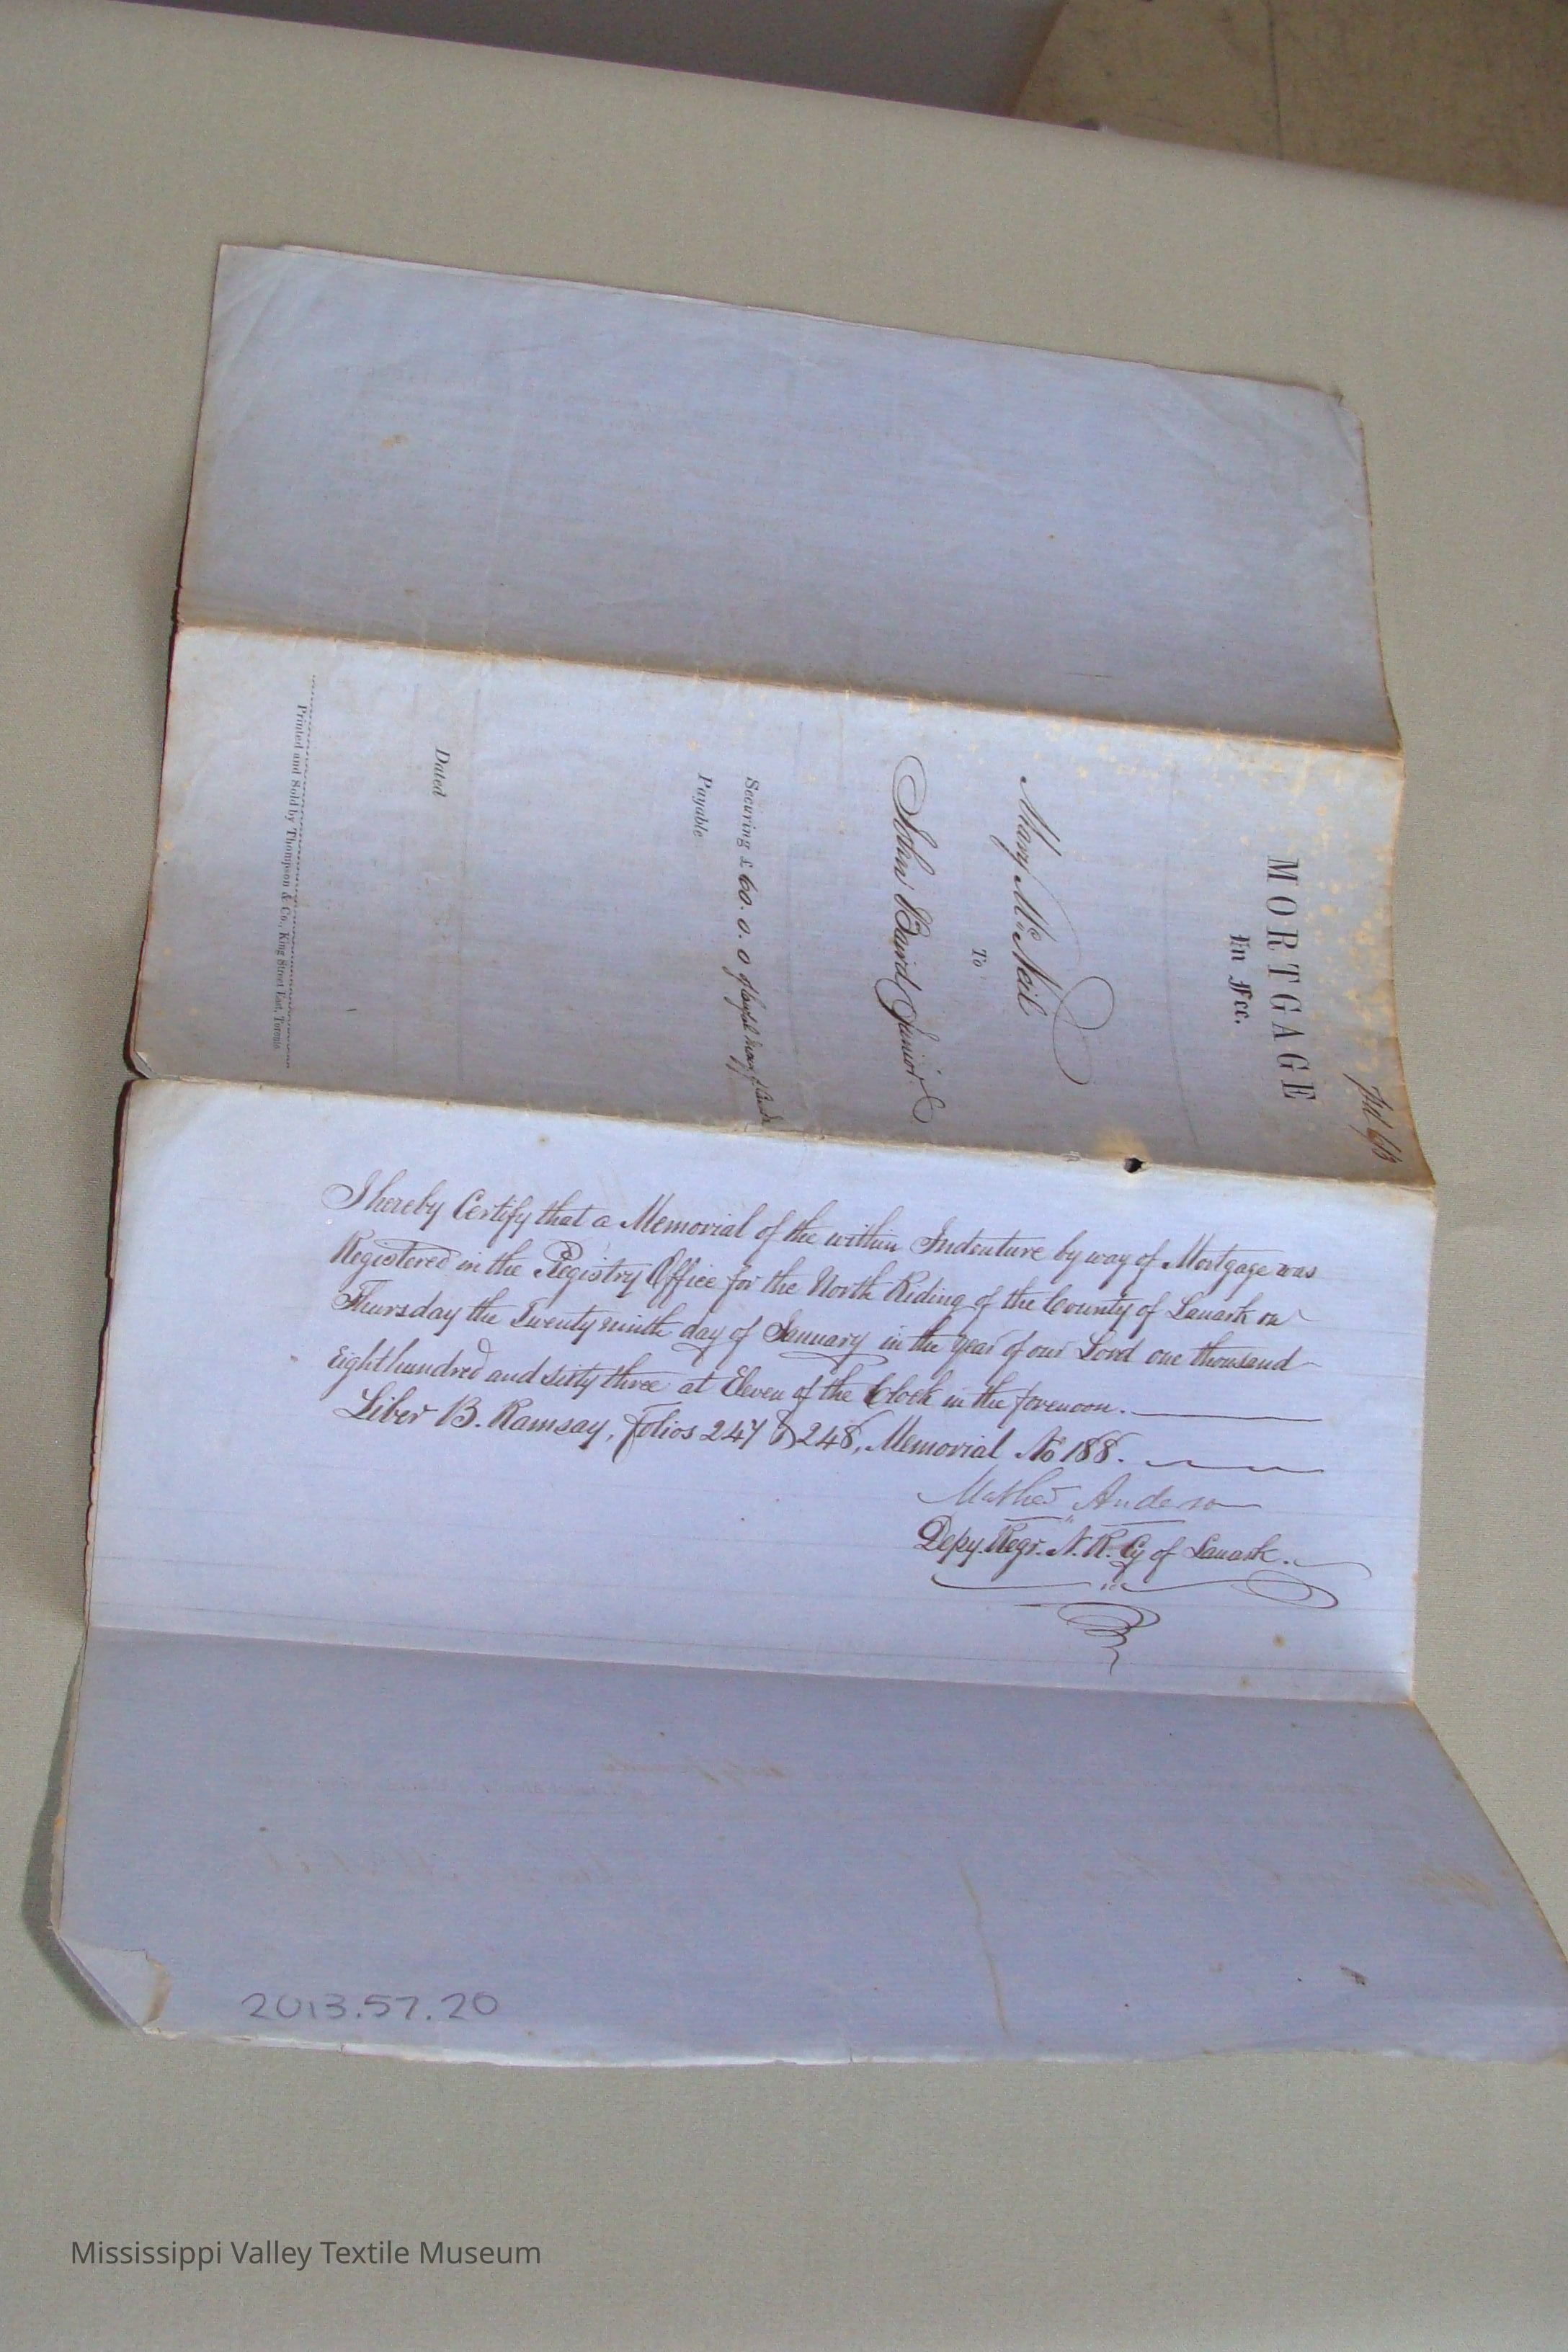 MORTGAGE
In Fee.
Mary McNeil
To
John Baird Junior
Securing £ 60. 0. 0 of lawful money of Canada
Payable
Dated
Printed and Sold by Thompson & Co., King Street East, Toronto
I hereby Certify that a Memorial of the within Indenture by way of Mortgage was
Registered in the Registry Office for the North Riding of the County of Lanark on
Thursday the Twenty ninth day of January in the year of our Lord one thousand
Eight hundred and sixty three at Eleven of the Clock in the forenoon.
Liber B. Ramsay, Folios 247 & 248, Memorial No 188.
Anderson
Depy. Regr. N. R. Cy of Lanark.
2013.57.20
Mississippi Valley Textile Museum